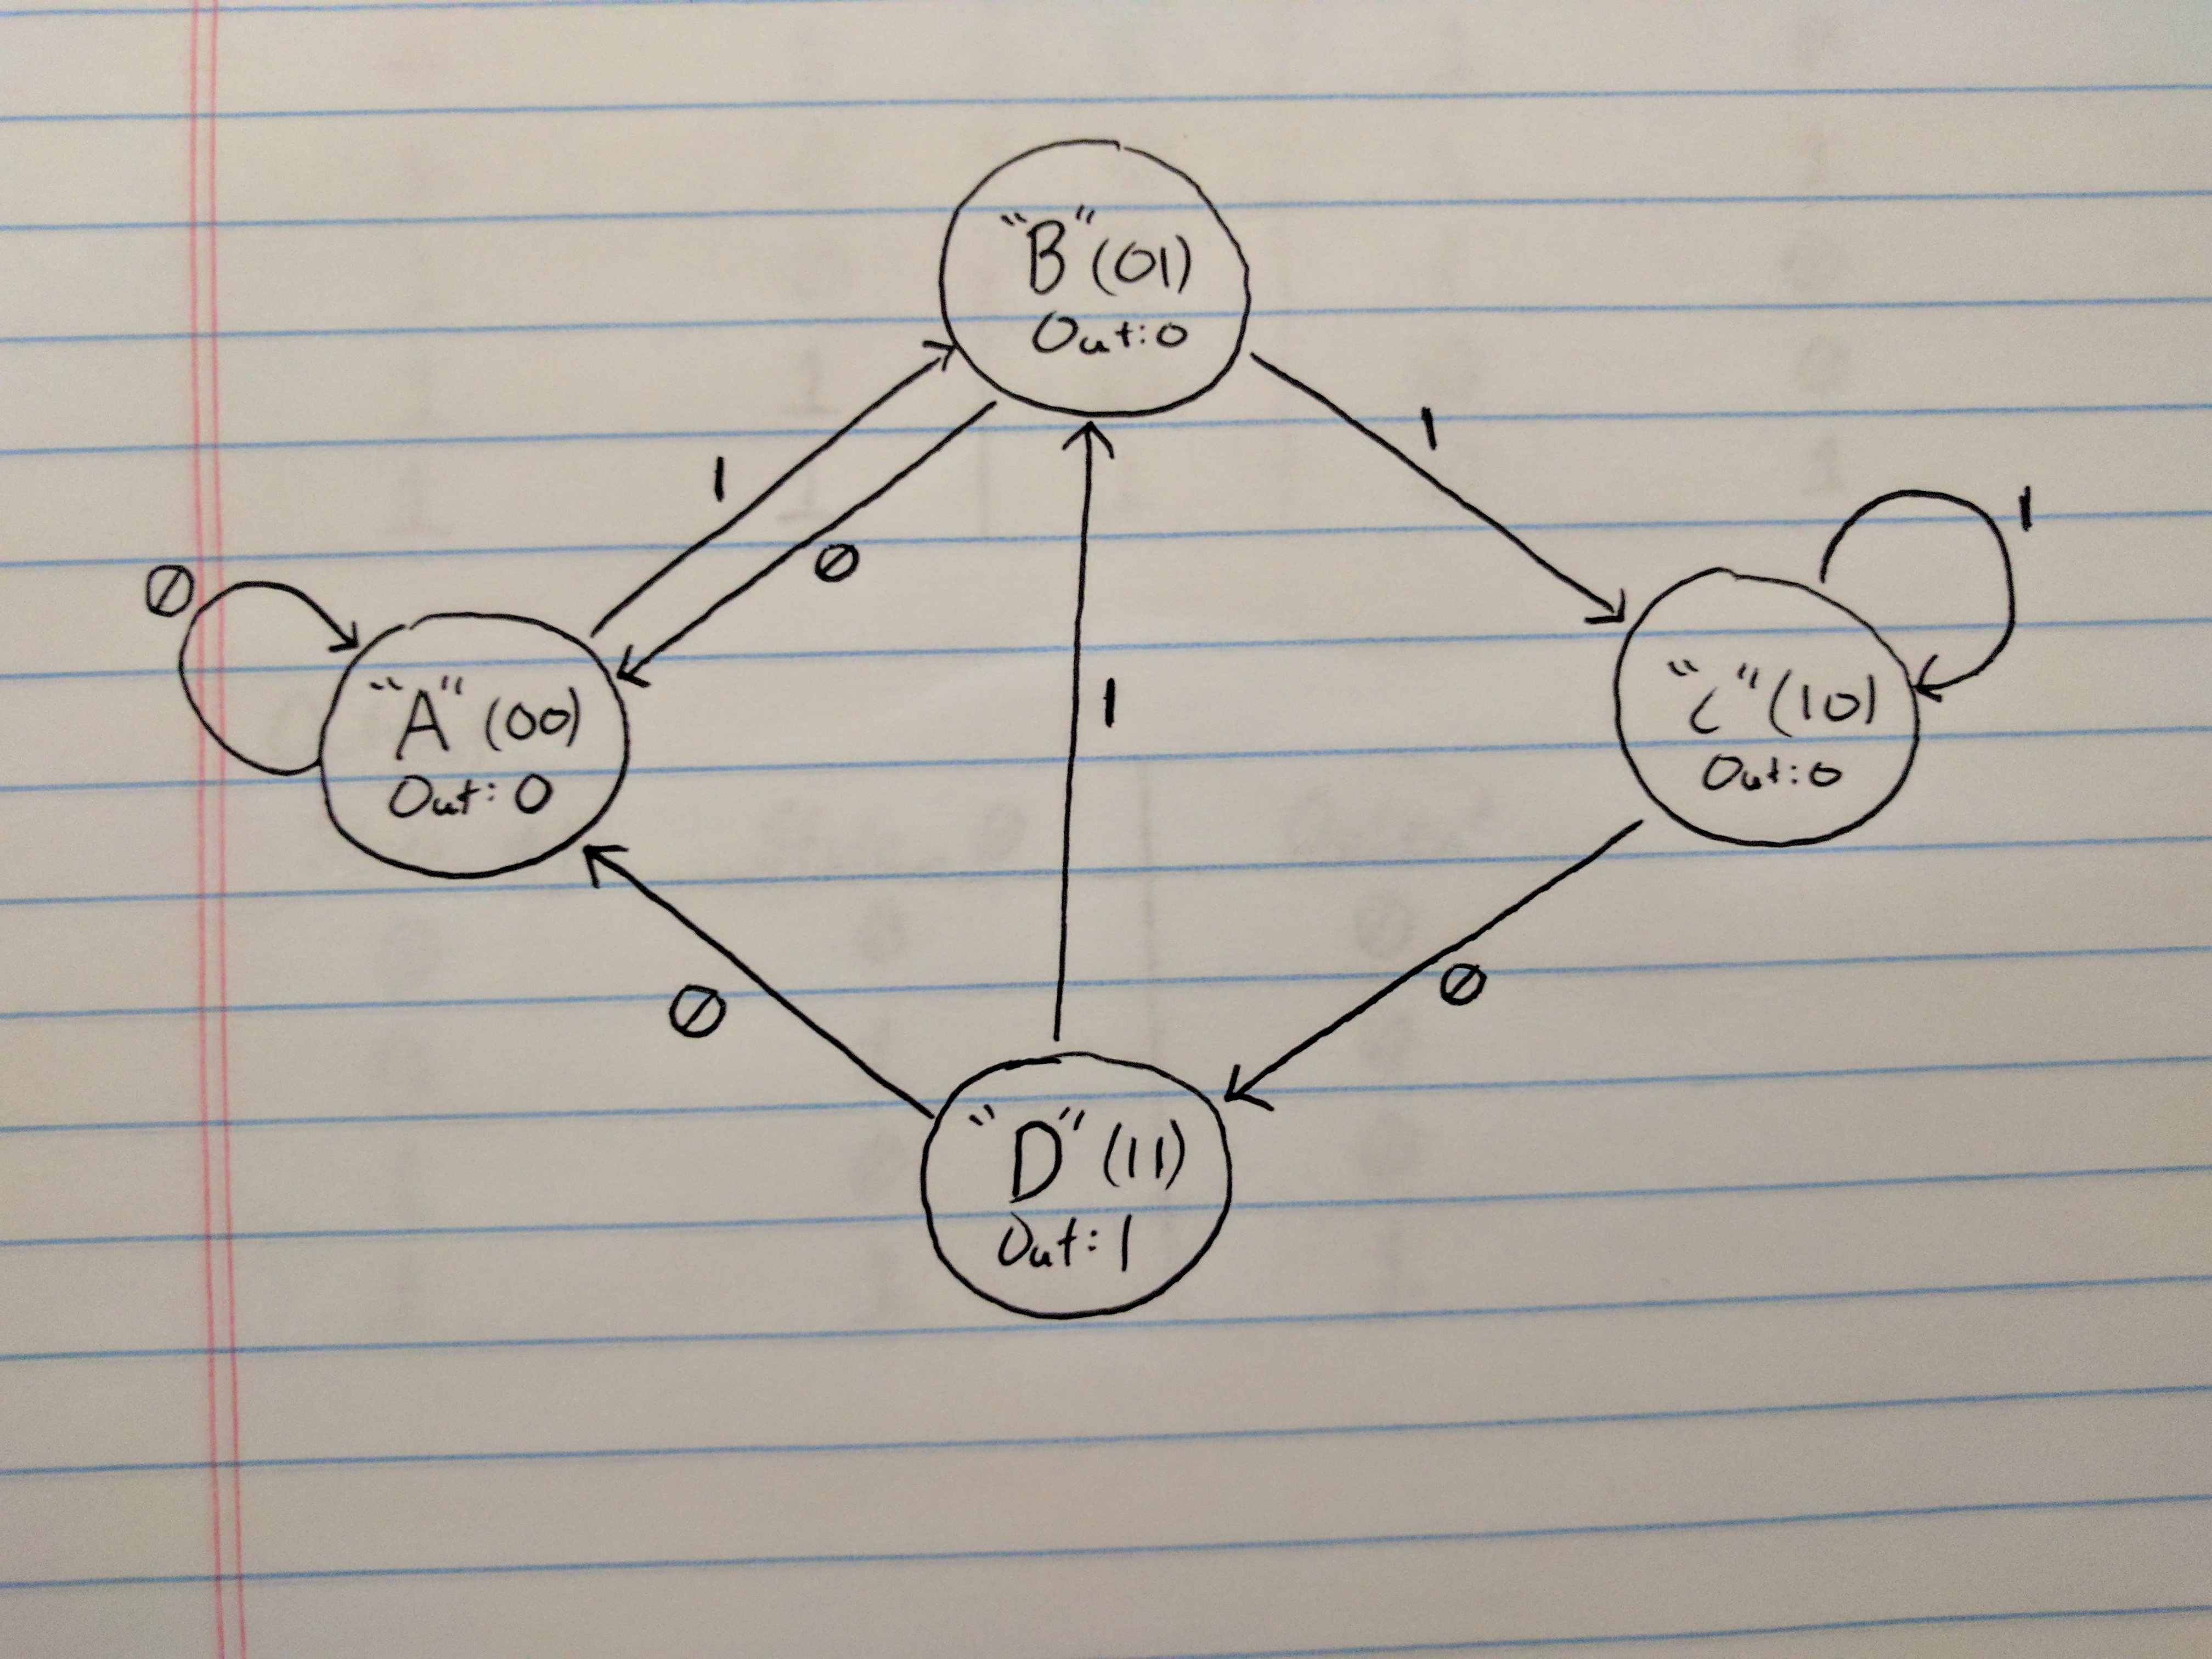 "B" (01)
Out: 0
1
1
1
0
0
"A" (00)
Out: 0
1
"C" (10)
Out: 0
0
0
"D" (11)
Out: 1